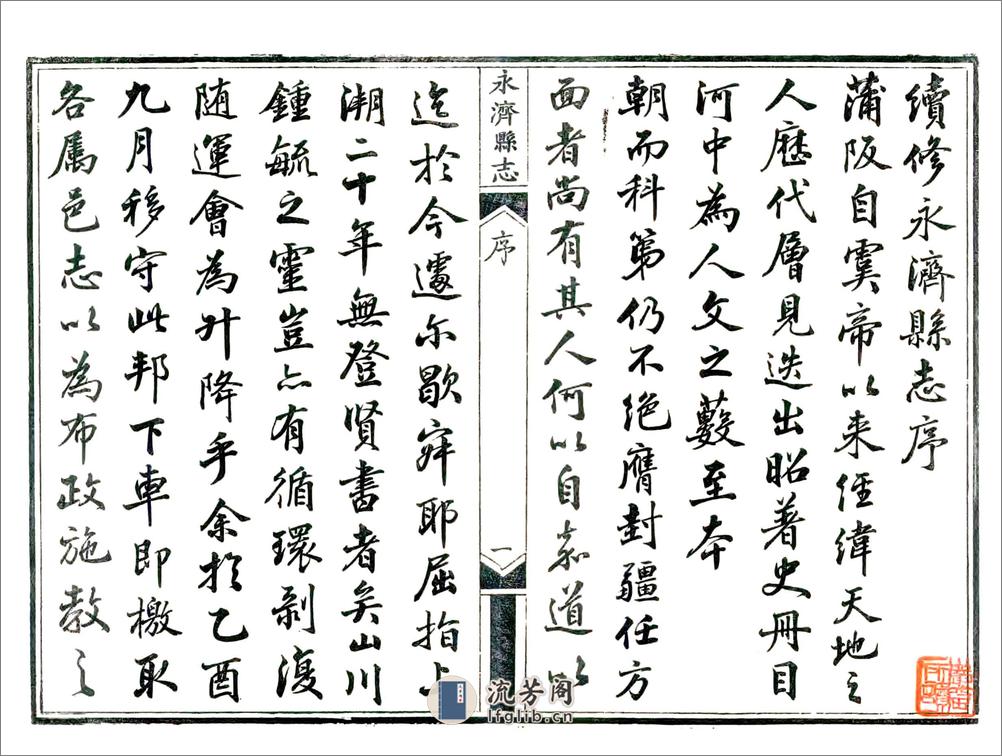 續修永濟縣志序
蒲阪自虞帝以来經緯天地之
人歷代層見迭出昭著史冊目
河中為人文之藪至本
朝而科第仍不絕膺封疆任方
面者尚有其人何以自嘉道以
永濟縣志
序
一
迄於今遽尔歇寂耶屈指上
溯二十年無登賢書者矣山川
鍾毓之靈豈亦有循環剝復
随運會為升降乎余於乙酉
九月移守此邦下車即檄取
各属邑志以為布政施教之
流芳阁
lfglib.cn